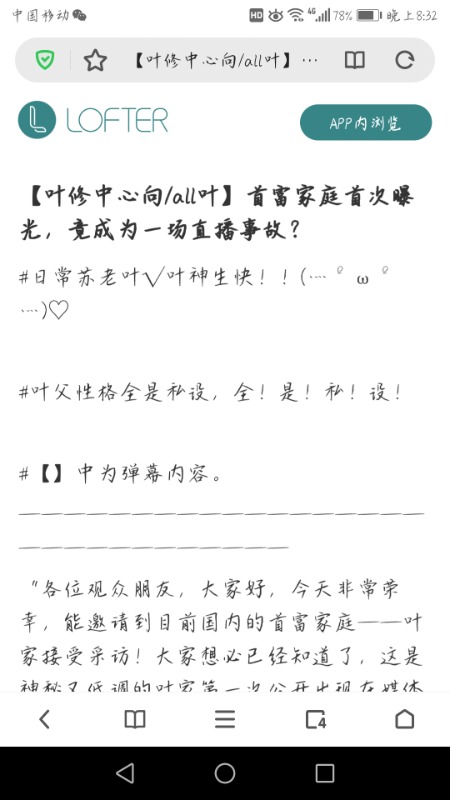 中国移动
HD 4G 78% 晚上8:32
【叶修中心向/all叶】…
LOFTER
APP内浏览
【叶修中心向/all叶】首富家庭首次曝
光，竟成为一场直播事故？
#日常苏老叶√叶神生快！！(﹡ﾟ ω ﾟ
﹡)♡
#叶父性格全是私设，全！是！私！设！
#【】中为弹幕内容。
——————————————————
————————————
“各位观众朋友，大家好，今天非常荣
幸，能邀请到目前国内的首富家庭——叶
家接受采访！大家想必已经知道了，这是
神秘又低调的叶家第一次公开出现在媒体
4